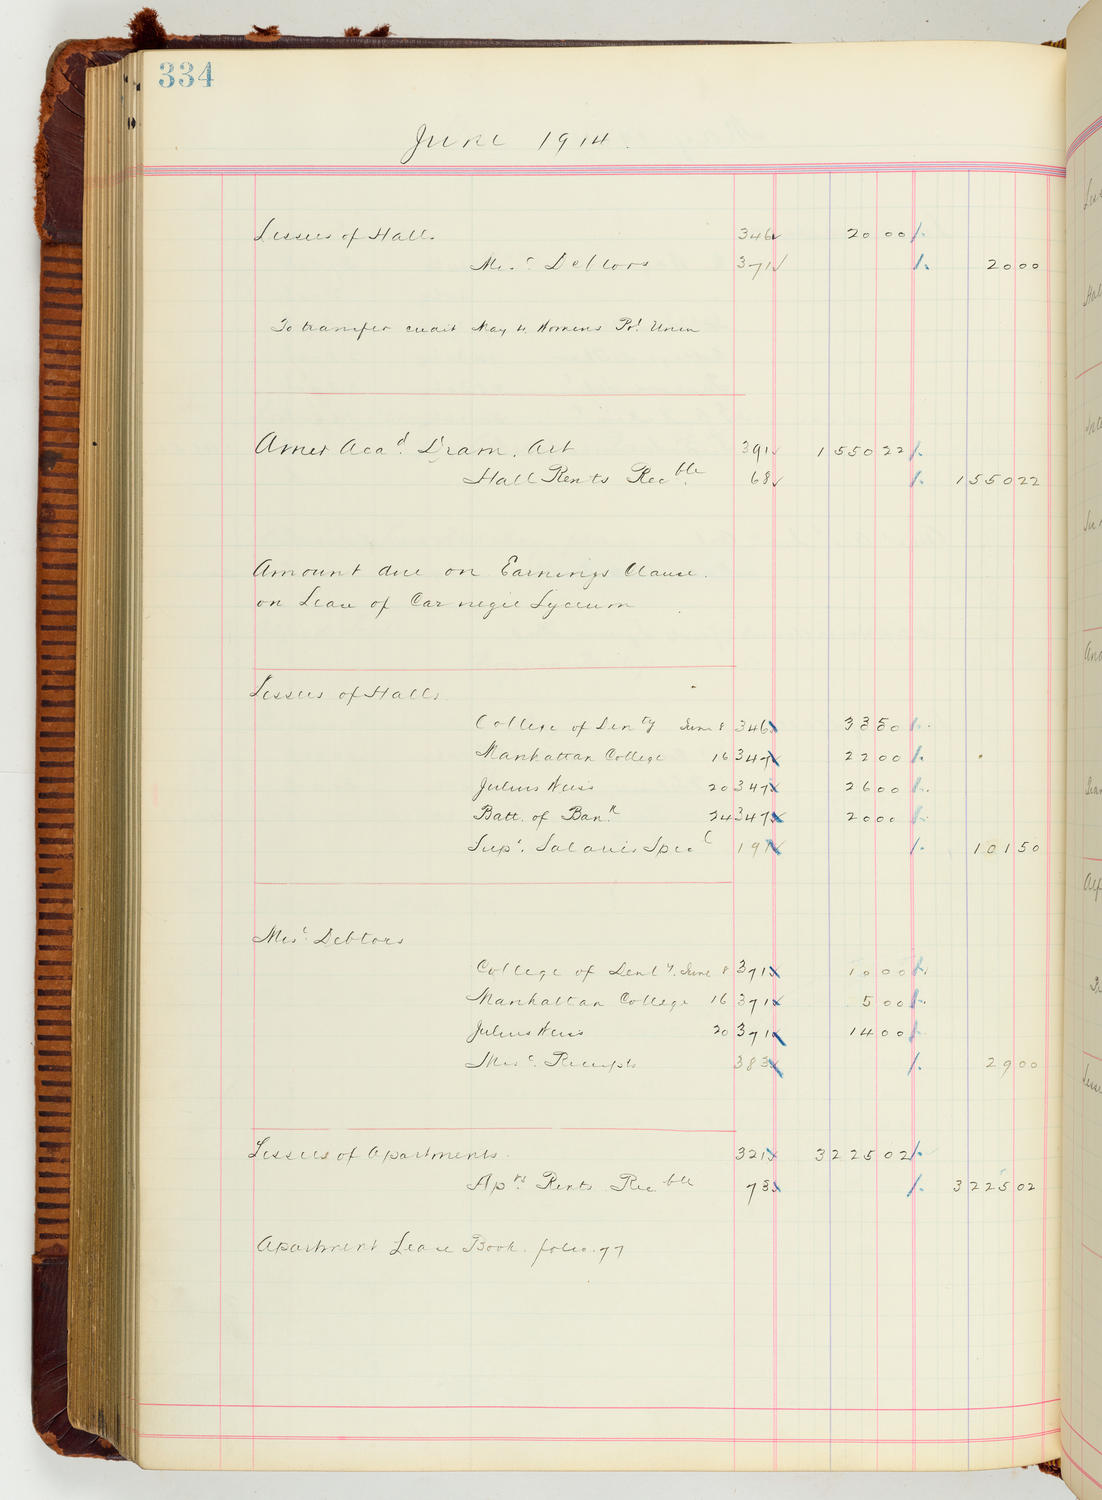 334
June 1914.
Lessees of Hall. 346 20 00
Misc Debtors 371 20 00
To transfer credit May 4. Womens Pol Union
Amer Acad. Dram. Art 391 1550 22
Hall Rents Recble 68 1550 22
Amount due on Earnings Clause.
on Lease of Carnegie Lyceum
Lessees of Halls
College of Denty June 8 346 33 50
Manhattan College 16 347 22 00
Julius Weiss 20 347 26 00
Batt. of 24 347 20 00
Supt. Salaries Specl 191 101 50
Misc. Debtors
College of Denty. June 8 371 10 00
Manhattan College 16 371 5 00
Julius Weiss 20 371 14 00
Misc. Receipts 383 29 00
Lessees of Apartments. 321 3225 02
Apts Rents Recble 73 3225 02
Apartment Lease Book. folio. 77